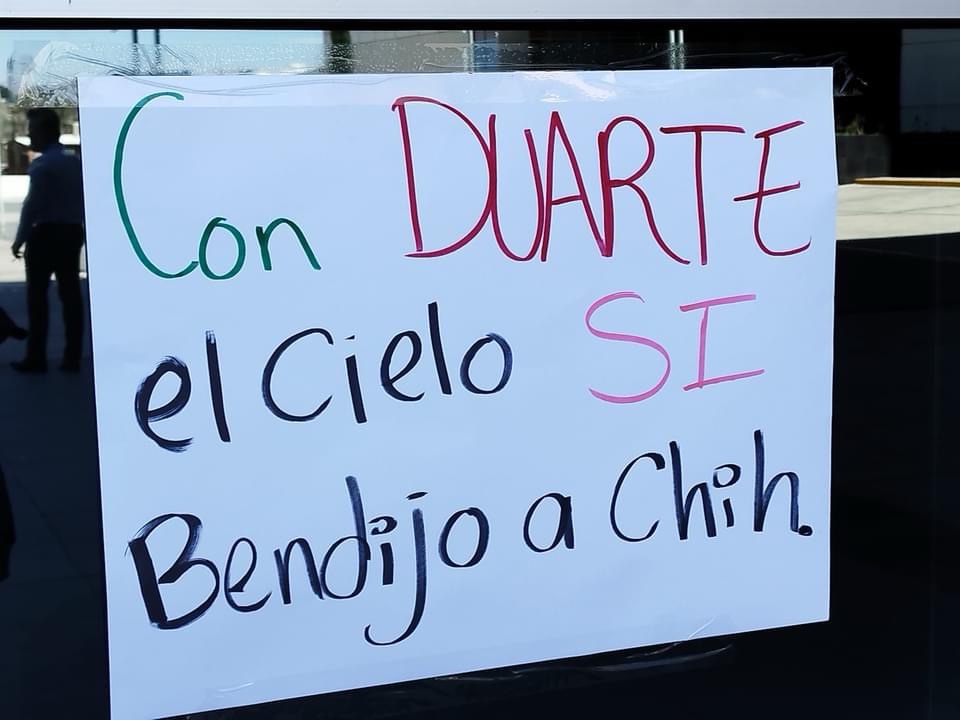 Con DUARTE
el Cielo SI
Bendijo a Chih.